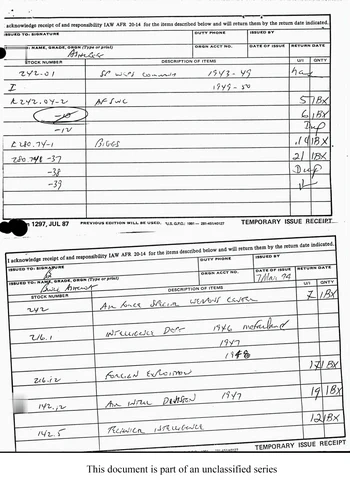 acknowledge receipt of and responsibility IAW AFR 20-14 for the items described below and will return them by the return date indicated.
ISSUED TO: SIGNATURE DUTY PHONE ISSUED BY
NAME, GRADE, ORGN (Type or print) ORGN ACCT NO. DATE OF ISSUE RETURN DATE
STOCK NUMBER DESCRIPTION OF ITEMS U/I QNTY
242-01 1943-49
I 1949-50
K242.04-2 AFSWC 5 1BX
-10 6 1BX
-12 Dup
K280.74-1 BIGGS 1BX
280.748-37 21 1BX
-38 Dup
-39
1297, JUL 87 PREVIOUS EDITION WILL BE USED. TEMPORARY ISSUE RECEIPT
I acknowledge receipt of and responsibility IAW AFR 20-14 for the items described below and will return them by the return date indicated.
ISSUED TO: SIGNATURE DUTY PHONE ISSUED BY
ISSUED TO: NAME, GRADE, ORGN (Type or print) ORGN ACCT NO. DATE OF ISSUE RETURN DATE
7 Mar 94
STOCK NUMBER DESCRIPTION OF ITEMS U/I QNTY
242 Air Force Special Weapons Center 7 1BX
216.1 Intelligence Dept 1946
1947
1948
216.12 Foreign Exploitation 17 1BX
142.12 Air Intel Division 1947 19 1BX
142.5 Technical Intelligence 12 1BX
TEMPORARY ISSUE RECEIPT
This document is part of an unclassified series